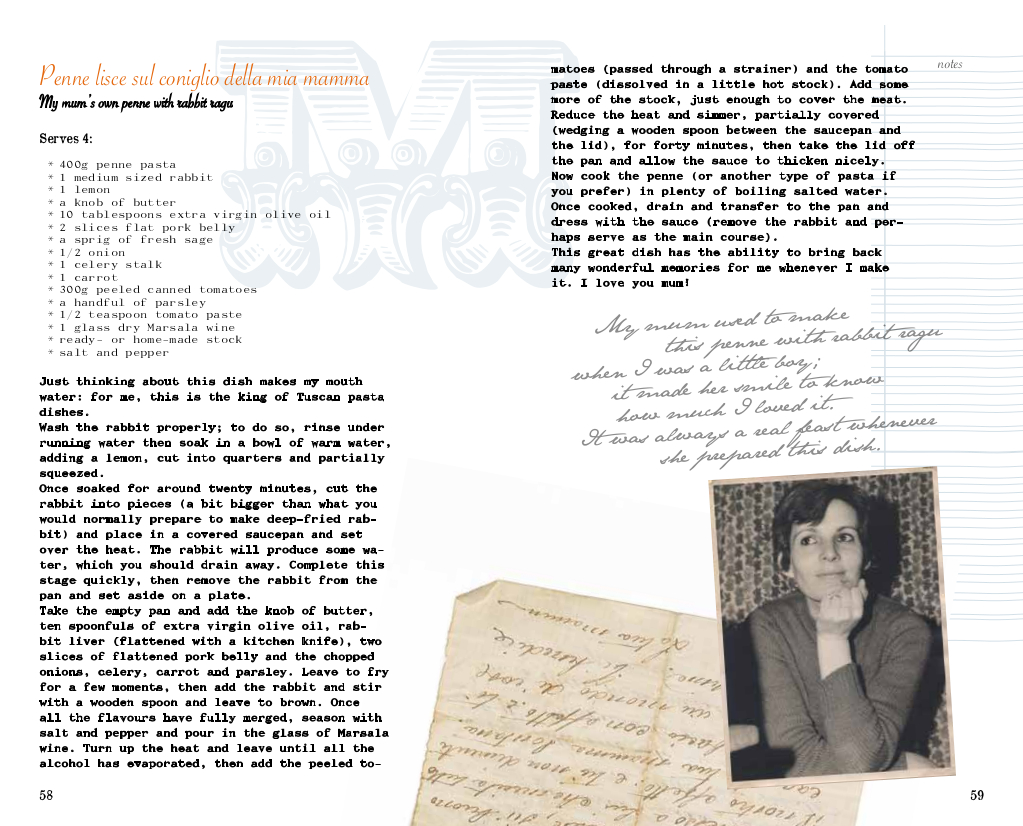 M
Penne lisce sul coniglio della mia mamma
My mum's own penne with rabbit ragu
Serves 4:
* 400g penne pasta
* 1 medium sized rabbit
* 1 lemon
* a knob of butter
* 10 tablespoons extra virgin olive oil
* 2 slices flat pork belly
* a sprig of fresh sage
* 1/2 onion
* 1 celery stalk
* 1 carrot
* 300g peeled canned tomatoes
* a handful of parsley
* 1/2 teaspoon tomato paste
* 1 glass dry Marsala wine
* ready- or home-made stock
* salt and pepper
Just thinking about this dish makes my mouth
water: for me, this is the king of Tuscan pasta
dishes.
Wash the rabbit properly; to do so, rinse under
running water then soak in a bowl of warm water,
adding a lemon, cut into quarters and partially
squeezed.
Once soaked for around twenty minutes, cut the
rabbit into pieces (a bit bigger than what you
would normally prepare to make deep-fried rab-
bit) and place in a covered saucepan and set
over the heat. The rabbit will produce some wa-
ter, which you should drain away. Complete this
stage quickly, then remove the rabbit from the
pan and set aside on a plate.
Take the empty pan and add the knob of butter,
ten spoonfuls of extra virgin olive oil, rab-
bit liver (flattened with a kitchen knife), two
slices of flattened pork belly and the chopped
onions, celery, carrot and parsley. Leave to fry
for a few moments, then add the rabbit and stir
with a wooden spoon and leave to brown. Once
all the flavours have fully merged, season with
salt and pepper and pour in the glass of Marsala
wine. Turn up the heat and leave until all the
alcohol has evaporated, then add the peeled to-
58
matoes (passed through a strainer) and the tomato
paste (dissolved in a little hot stock). Add some
more of the stock, just enough to cover the meat.
Reduce the heat and simmer, partially covered
(wedging a wooden spoon between the saucepan and
the lid), for forty minutes, then take the lid off
the pan and allow the sauce to thicken nicely.
Now cook the penne (or another type of pasta if
you prefer) in plenty of boiling salted water.
Once cooked, drain and transfer to the pan and
dress with the sauce (remove the rabbit and per-
haps serve as the main course).
This great dish has the ability to bring back
many wonderful memories for me whenever I make
it. I love you mum!
notes
My mum used to make
this penne with rabbit ragu
when I was a little boy;
it made her smile to know
how much I loved it.
It was always a real feast whenever
she prepared this dish.
59